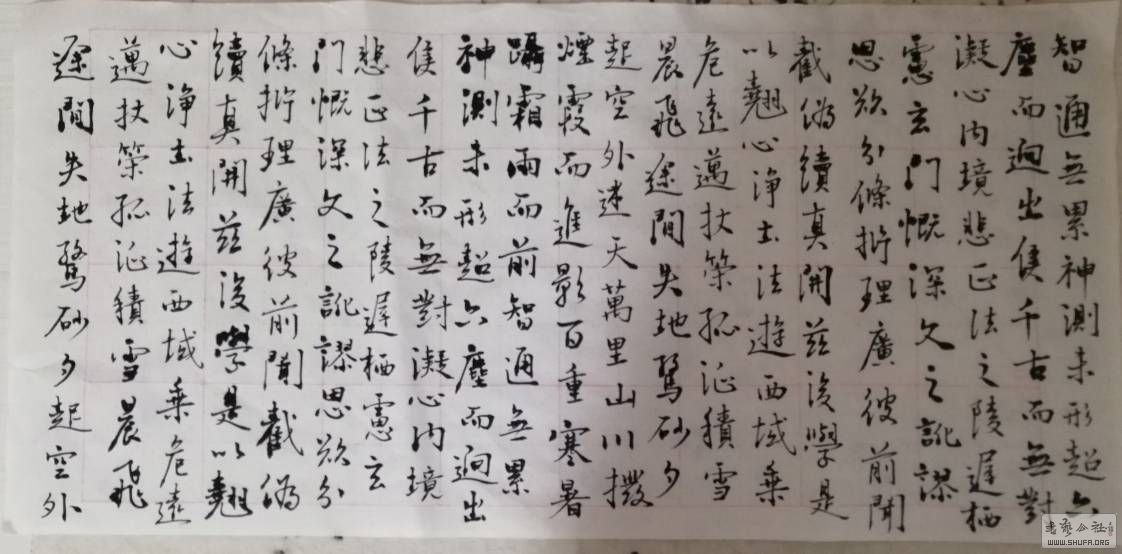 智通無累神測未形超六
塵而迥出隻千古而無對
凝心内境悲正法之陵遲栖
慮玄門慨深文之訛謬
思欲分條析理廣彼前聞
截偽續真開茲後學是
以翹心淨土法遊西域乘
危遠邁杖策孤征積雪
晨飛途間失地驚砂夕
起空外迷天萬里山川撥
煙霞而進影百重寒暑
躡霜雨而前智通無累
神測未形超六塵而迥出
隻千古而無對凝心内境
悲正法之陵遲栖慮玄
門慨深文之訛謬思欲分
條析理廣彼前聞截偽
續真開茲後學是以翹
心淨土法遊西域乘危遠
邁杖策孤征積雪晨飛
途間失地驚砂夕起空外
书艺公社
WWW.SHUFA.ORG